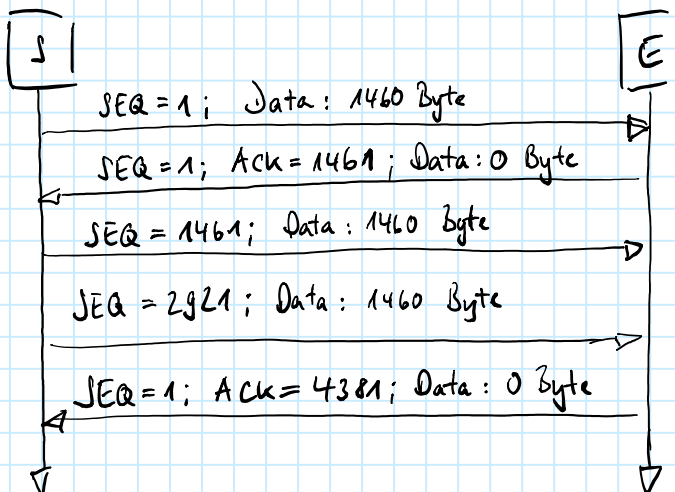 S
E
SEQ = 1; Data: 1460 Byte
SEQ = 1; Ack = 1461; Data: 0 Byte
SEQ = 1461; Data: 1460 Byte
SEQ = 2921; Data: 1460 Byte
SEQ = 1; Ack = 4381; Data: 0 Byte